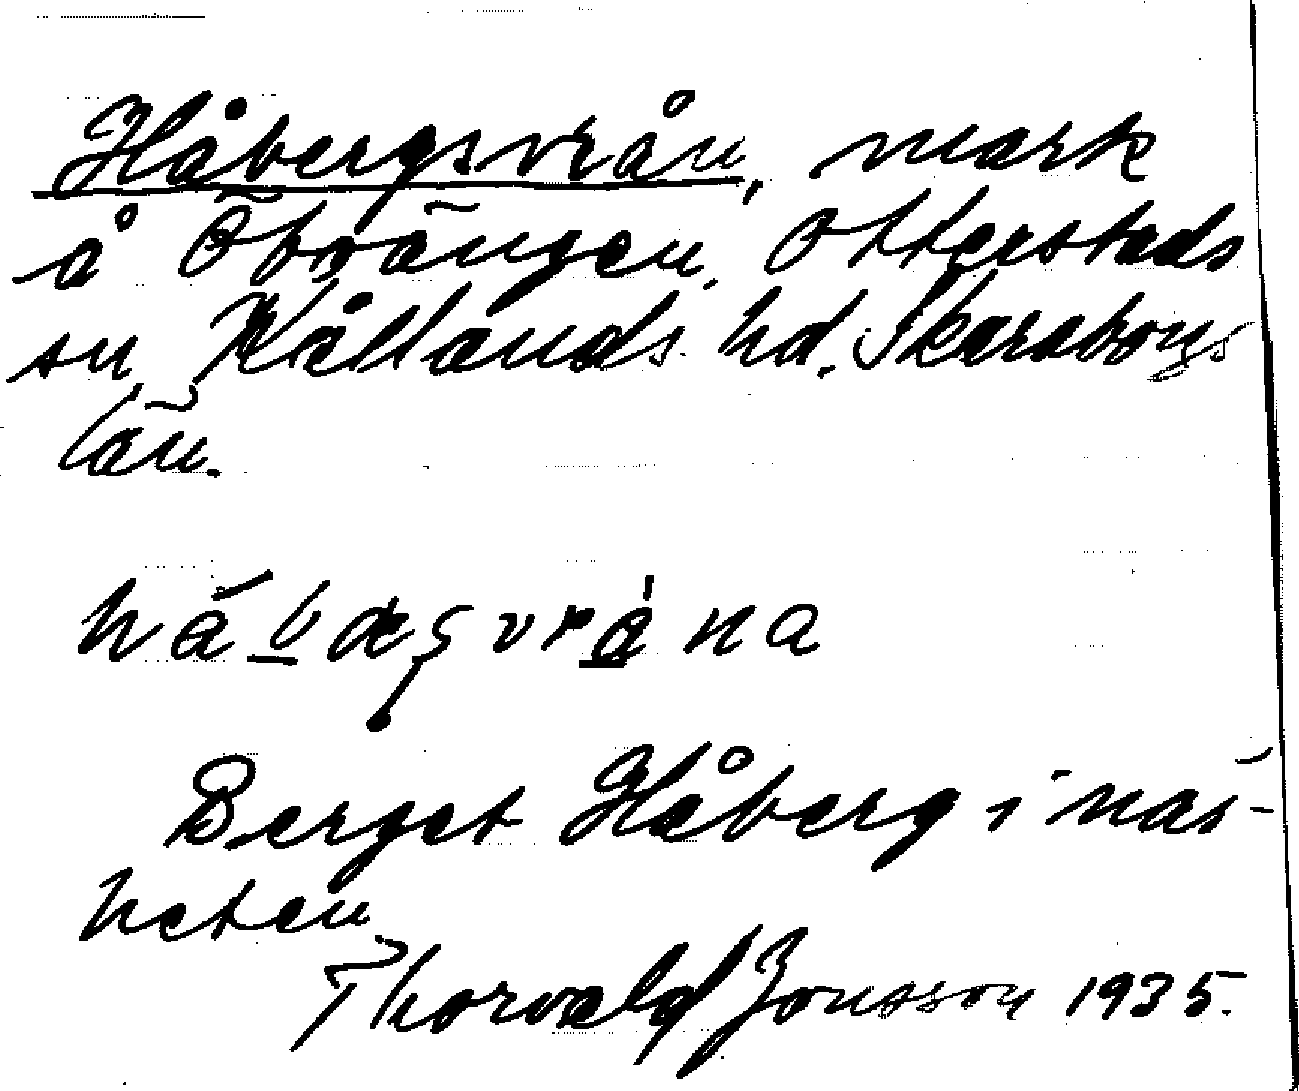 Håbergsvrån, mark
å Öbvängen, Otterstads
sn, Kållands hd. Skaraborgs
län.
Berget Håberg i när-
heten
Thorvald Jonsson 1935.